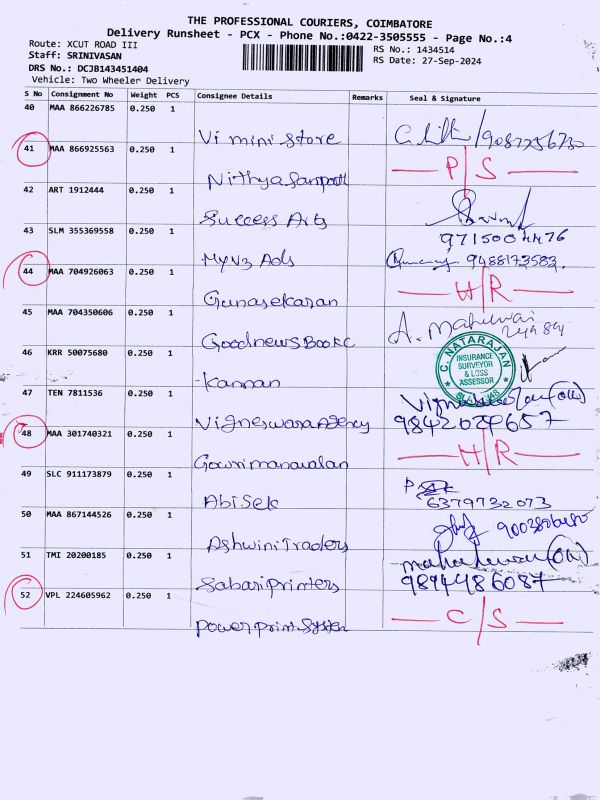 THE PROFESSIONAL COURIERS, COIMBATORE
Delivery Runsheet - PCX - Phone No.:0422-3505555 - Page No.:4
Route: XCUT ROAD III
Staff: SRINIVASAN
DRS No.: DCJB143451404
Vehicle: Two Wheeler Delivery
RS No.: 1434514
RS Date: 27-Sep-2024
S No Consignment No Weight PCS Consignee Details Remarks Seal & Signature
40 MAA 866226785 0.250 1
Vi mini store
41 MAA 866925563 0.250 1
Nithya Sampath P/S
42 ART 1912444 0.250 1
Success Arts
43 SLM 355369558 0.250 1
9715004476
MYN3 Ads 9488173583
44 MAA 704926063 0.250 1
Gunasekaran H/R
45 MAA 704350606 0.250 1
A. Maheswari
GoodnewsBookc
46 KRR 50075680 0.250 1
C. NATARAJAN
INSURANCE
SURVEYOR
& LOSS
ASSESSOR
kannan
47 TEN 7811536 0.250 1
Vigneswara Agency 9842629657
48 MAA 301740321 0.250 1
Gowrimanavalan H/R
49 SLC 911173879 0.250 1
Abisek 6379732073
50 MAA 867144526 0.250 1
Ashwini Traders
51 TMI 20200185 0.250 1
Sabari Printers 9894486087
52 VPL 224605962 0.250 1
Power print System C/S